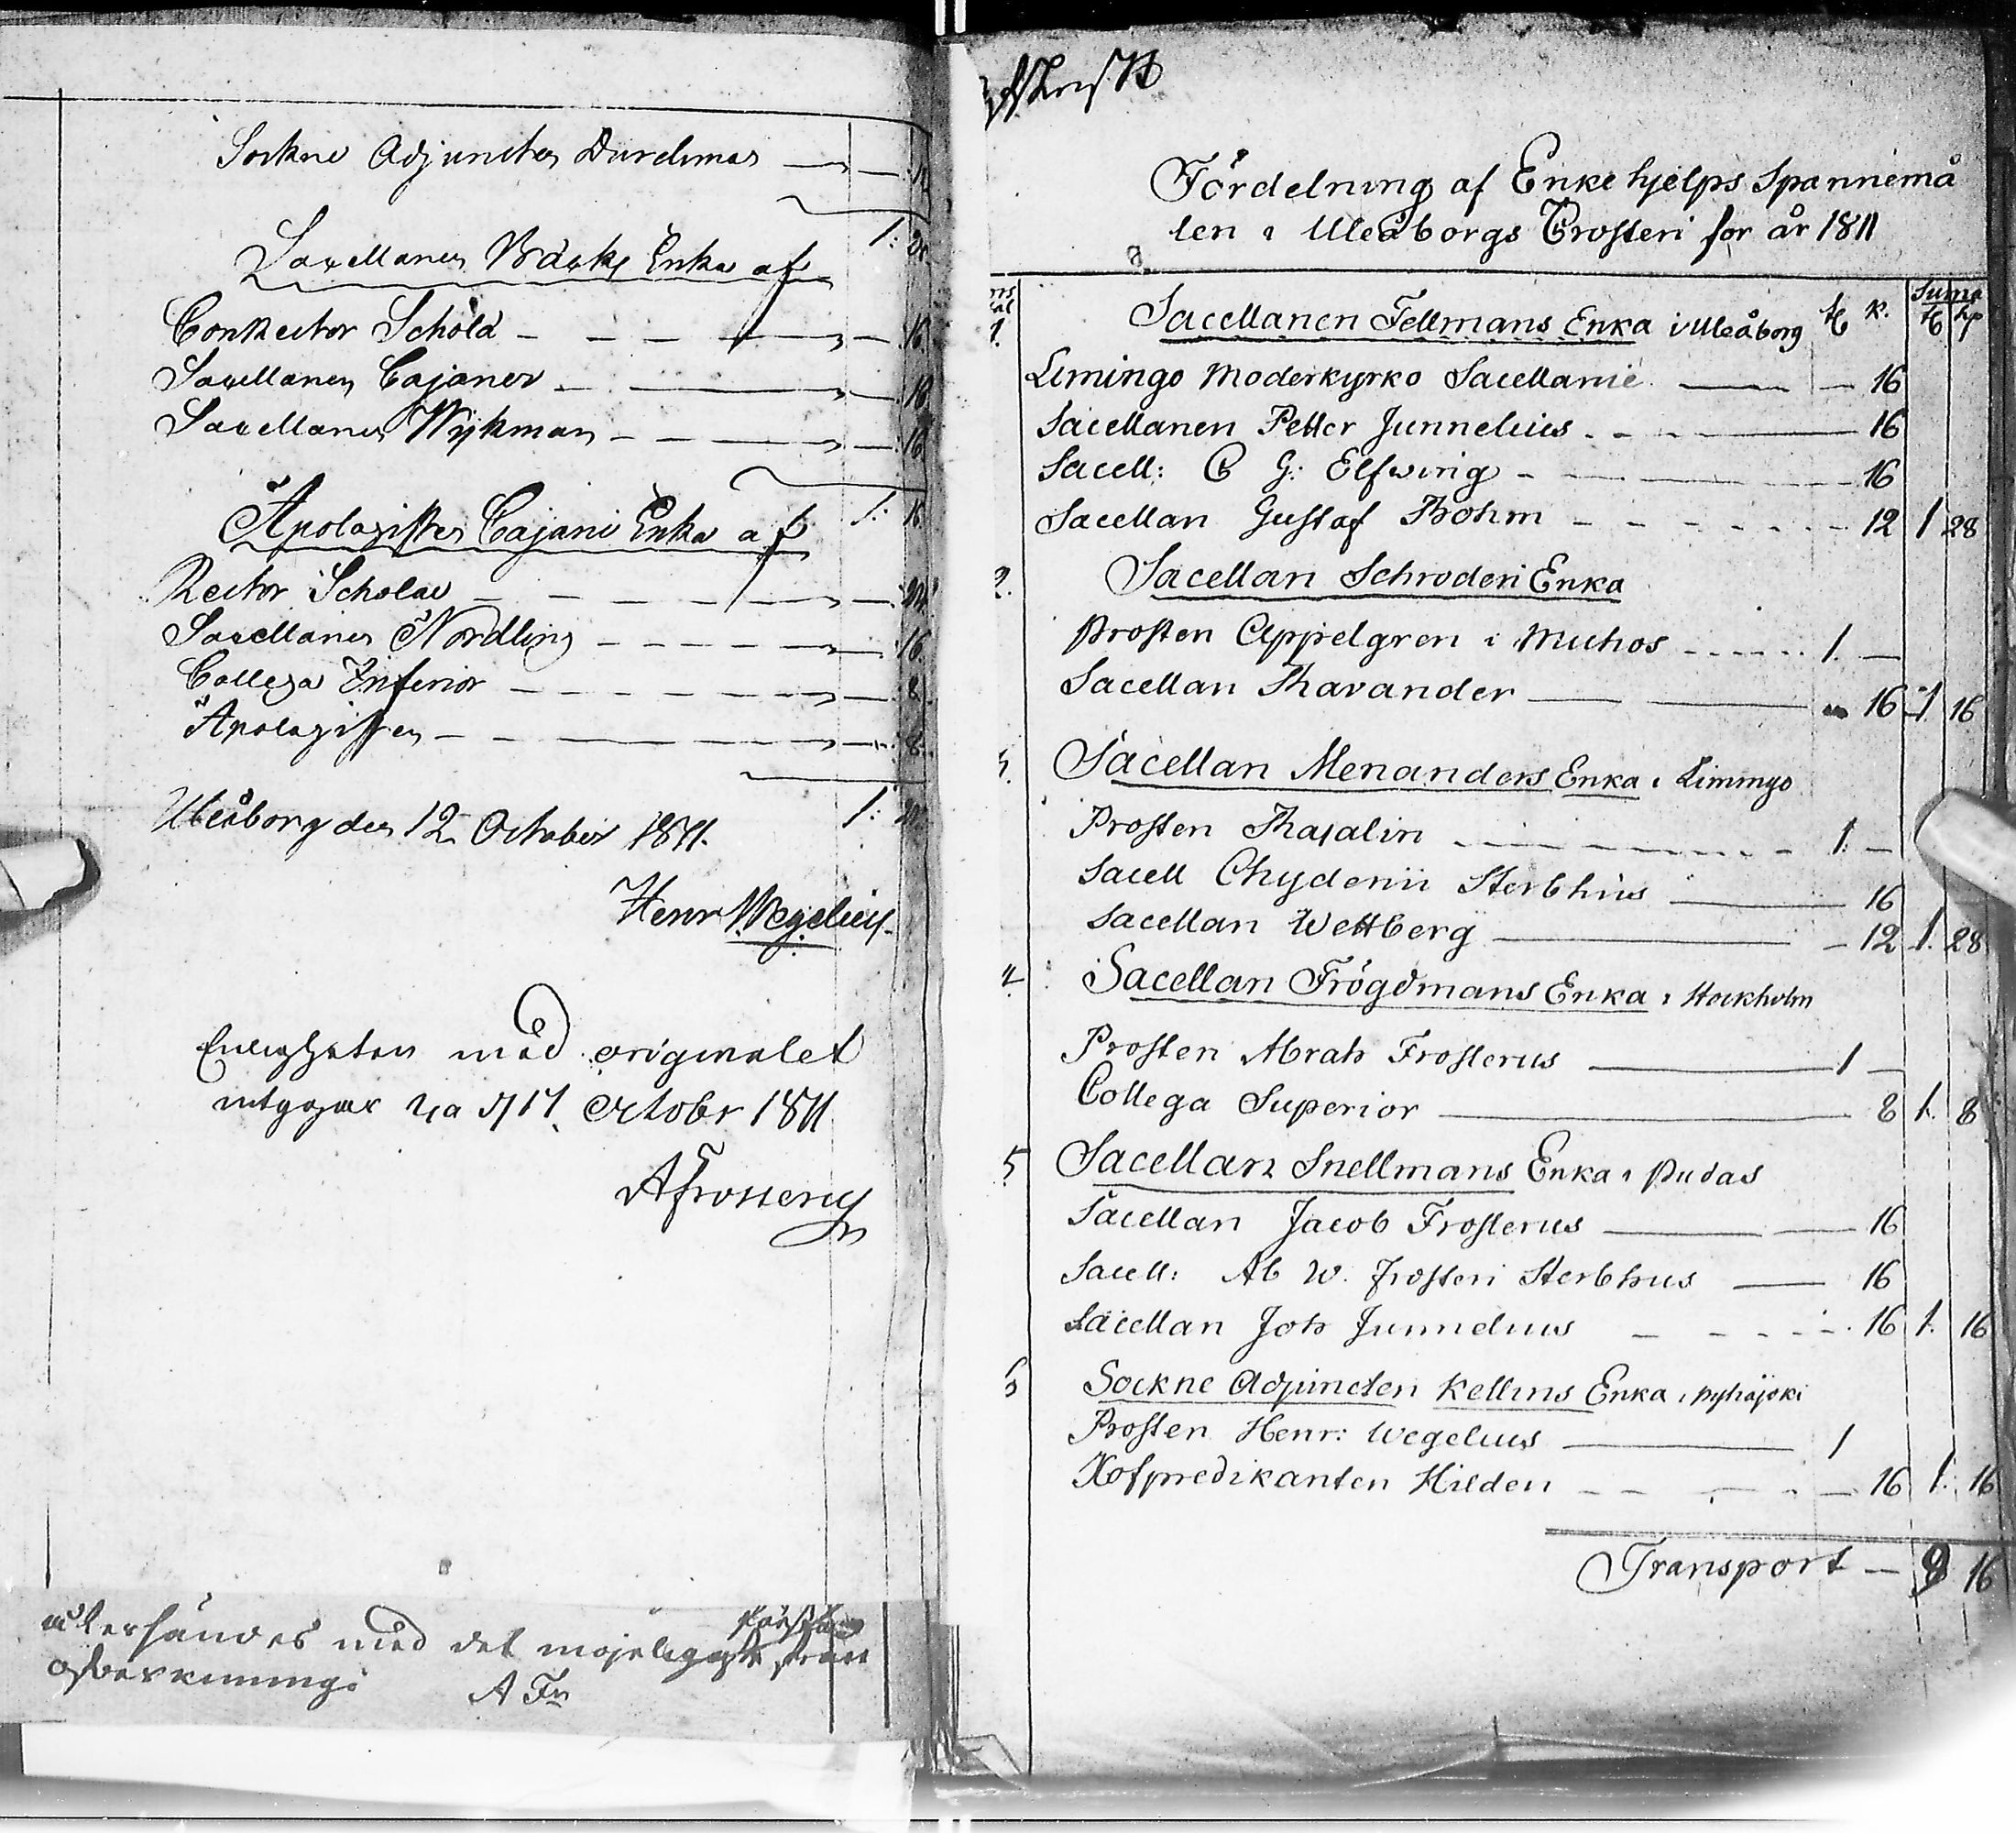 Sockne Adjuncten Durchman
1: 
Sacellanen Bäcks Enka af
ConRector Scholæ 16.
Sacellanen Cajaner 16
Sacellanen Wijkman 16
1: 16
Apologisten Cajani Enka af
Rector Scholæ
Sacellanen Nordling 16.
Collega Inferior 8
Apologisten 8.
1:
Uleåborg den 12 October 1811.
Henr Wegelius
Enligheten med originalet
intygar 17 October 1811
AFrosterus
återsändes med det mojeligaste
A Fs
Afskrift
Fördelning af Enke hjelps Spannemå
len i Uleåborgs Prosteri for år 1811
Suma
1. Sacellanen Fellmans Enka i Uleåborg K.
Limingo Moderkyrko Sacellanie 16
Sacellanen Petter Junnelius 16
Sacell: C G: Elfwing 16
Sacellan Gustaf Bohm 12 1 28
2. Sacellan Schroderi Enka
Prosten Appelgren i Muhos 1.
Sacellan Thavander 16 1 16
3. Sacellan Menanders Enka i Limingo
Prosten Thajalin 1:
Sacell Chydenii Sterbhus 16
Sacellan Wettberg 12 1. 28
4 Sacellan Frögdmans Enka i Stockholm
Prosten Abrah Frosterus 1
Collega Superior 8 1. 8
5 Sacellan Snellmans Enka i Pudas
Sacellan Jacob Frosterus 16
Sacell: Ab W. Frosteri Sterbhus 16
Sacellan Joh Junnelius 16 1. 16
6 Sockne Adjuncten Kellins Enka i Pyhäjoki
Prosten Henr: Wegelius 1
Hofpredikanten Hilden 16 1. 16
Transport 9 16